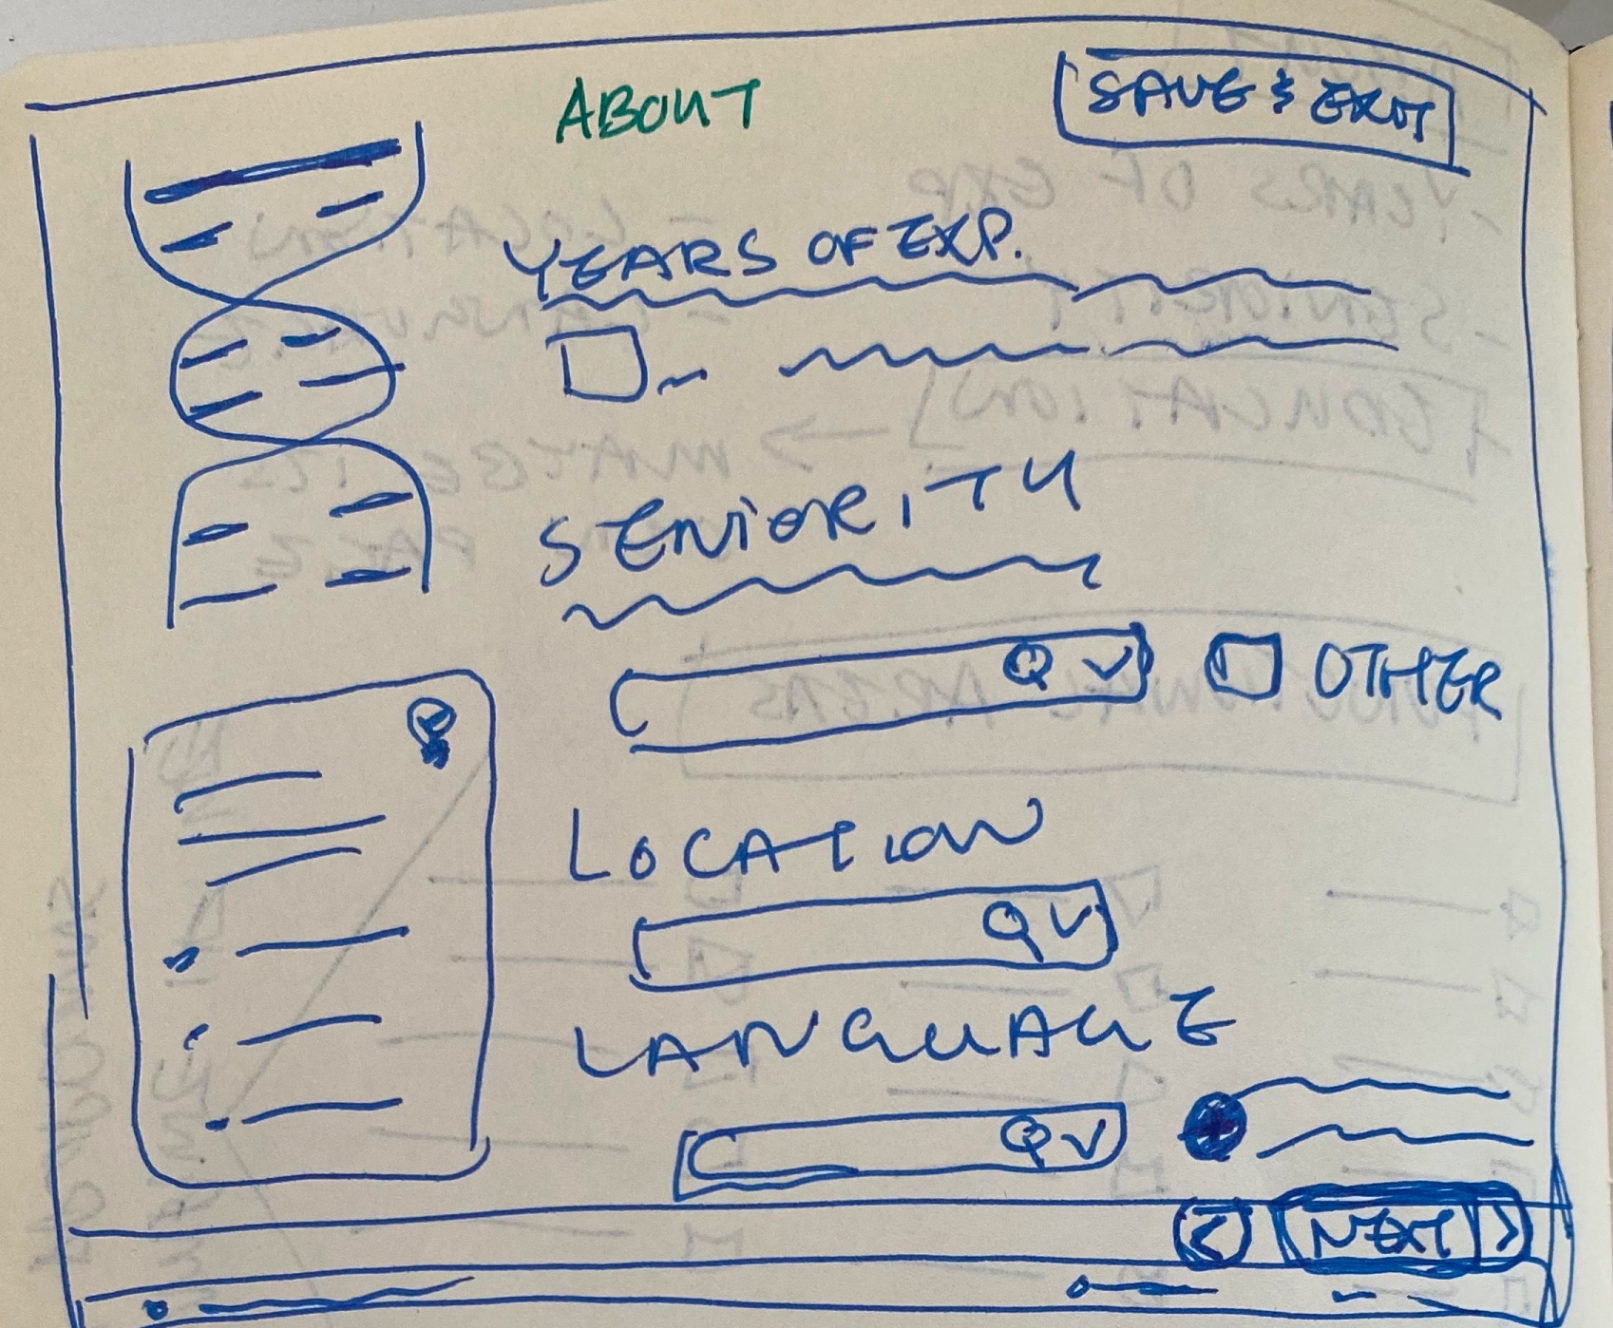 ABOUT
SAVE & EXIT
YEARS OF EXP.
SENIORITY
OTHER
LOCATION
LANGUAGE
< NEXT >